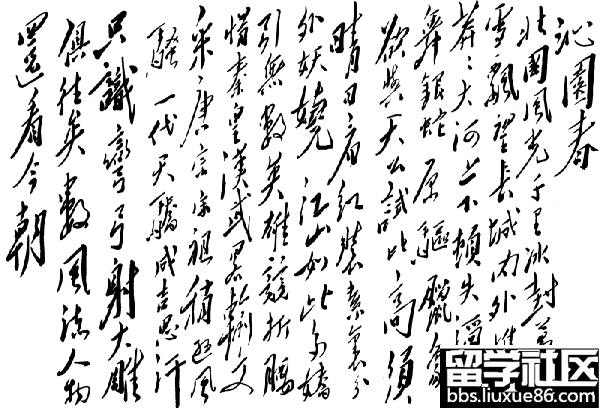 沁園春
北國風光千里冰封萬
雪飄望長城內外惟
莽〻大河上下頓失滔
舞銀蛇原驅臘象
欲與天公試比高須
晴日看紅裝素裹分
外妖嬈江山如此多嬌
引無數英雄競折腰
惜秦皇漢武略輸文
采唐宗宋祖稍遜風
騷一代天驕成吉思汗
只識彎弓射大雕
俱往矣數風流人物
還看今朝
留学社区
bbs.liuxue86.com